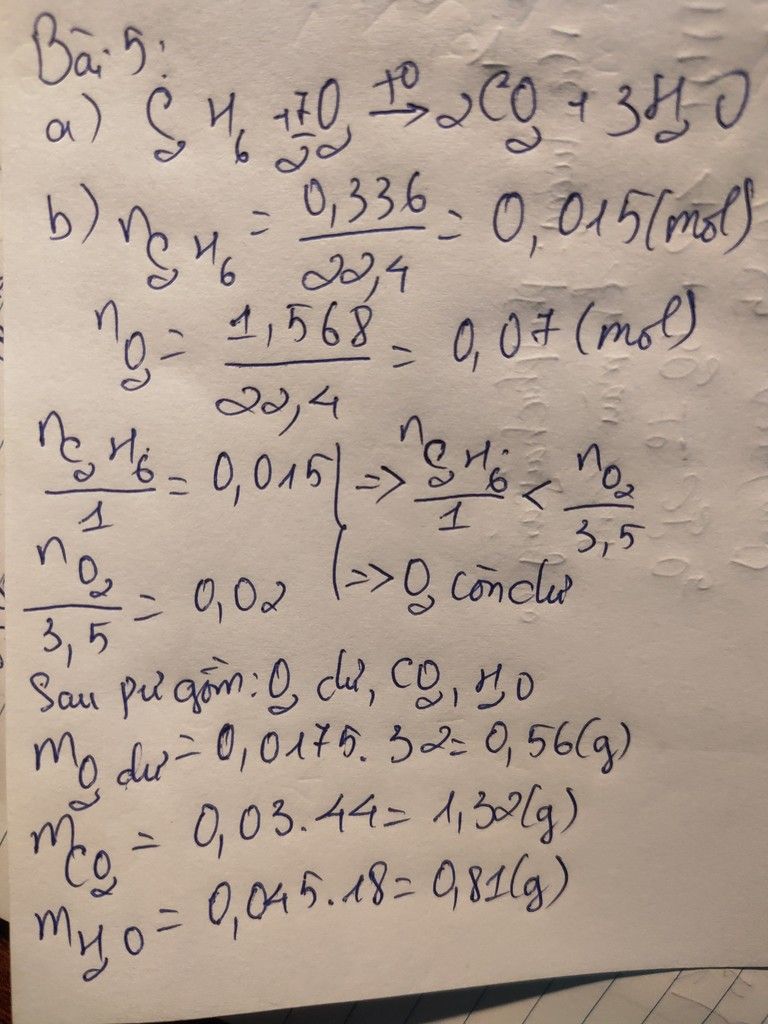 Bài 5:
a) C₂H₆ + 7/2 O₂ →(t⁰) 2CO₂ + 3H₂O
b) nC₂H₆ = 0,336/22,4 = 0,015(mol)
nO₂ = 1,568/22,4 = 0,07(mol)
nC₂H₆/1 = 0,015 } => nC₂H₆/1 < nO₂/3,5
nO₂/3,5 = 0,02 } => O₂ còn dư
Sau pư gồm: O₂ dư, CO₂, H₂O
mO₂ dư = 0,0175.32 = 0,56(g)
mCO₂ = 0,03.44 = 1,32(g)
mH₂O = 0,045.18 = 0,81(g)